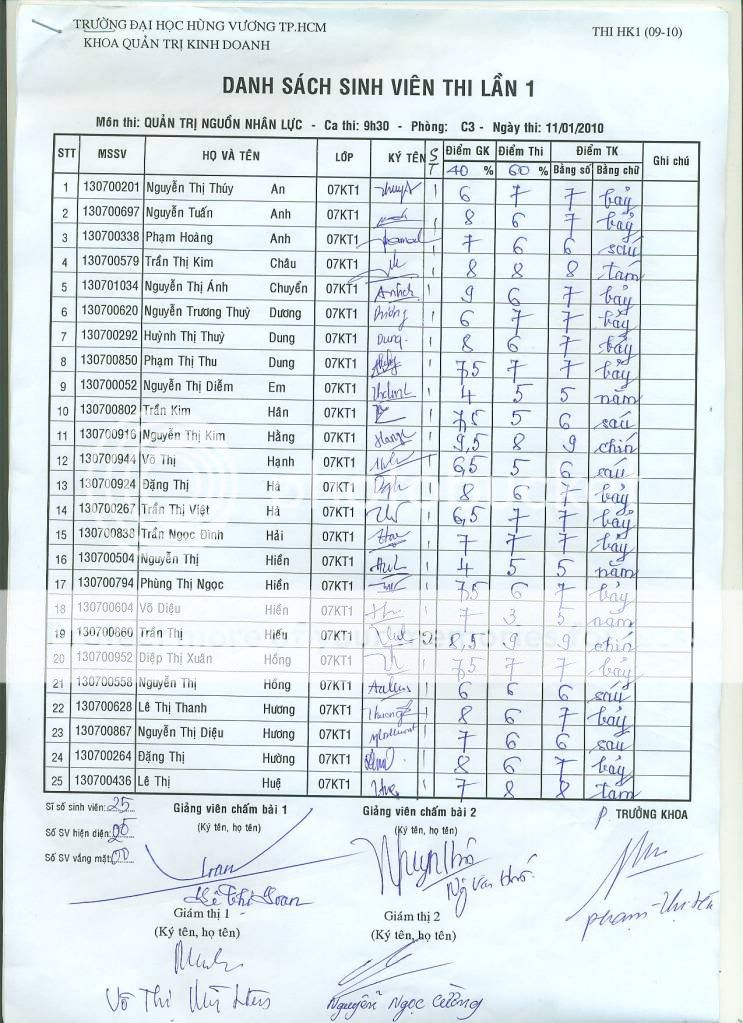 TRƯỜNG ĐẠI HỌC HÙNG VƯƠNG TP.HCM THI HK1 (09-10)
KHOA QUẢN TRỊ KINH DOANH
DANH SÁCH SINH VIÊN THI LẦN 1
Môn thi: QUẢN TRỊ NGUỒN NHÂN LỰC - Ca thi: 9h30 - Phòng: C3 - Ngày thi: 11/01/2010
STT MSSV HỌ VÀ TÊN LỚP KÝ TÊN ST Điểm GK Điểm Thi Điểm TK Ghi chú
40 % 60 % Bằng số Bằng chữ
1 130700201 Nguyễn Thị Thúy An 07KT1 1 6 7 7 bảy
2 130700697 Nguyễn Tuấn Anh 07KT1 1 8 6 7 bảy
3 130700338 Phạm Hoàng Anh 07KT1 1 7 6 6 sáu
4 130700579 Trần Thị Kim Châu 07KT1 1 8 8 8 tám
5 130701034 Nguyễn Thị Ánh Chuyển 07KT1 1 9 6 7 bảy
6 130700620 Nguyễn Trương Thuỳ Dương 07KT1 1 6 7 7 bảy
7 130700292 Huỳnh Thị Thuỳ Dung 07KT1 Dung 1 8 6 7 bảy
8 130700850 Phạm Thị Thu Dung 07KT1 1 7,5 7 7 bảy
9 130700052 Nguyễn Thị Diễm Em 07KT1 1 4 5 5 năm
10 130700802 Trần Kim Hân 07KT1 1 7,5 5 6 sáu
11 130700916 Nguyễn Thị Kim Hằng 07KT1 1 9,5 8 9 chín
12 130700944 Võ Thị Hạnh 07KT1 1 6,5 5 6 sáu
13 130700924 Đặng Thị Hà 07KT1 1 8 6 7 bảy
14 130700267 Trần Thị Việt Hà 07KT1 1 6,5 7 7 bảy
15 130700838 Trần Ngọc Đình Hải 07KT1 1 7 7 7 bảy
16 130700504 Nguyễn Thị Hiền 07KT1 1 4 5 5 năm
17 130700794 Phùng Thị Ngọc Hiền 07KT1 1 7,5 6 7 bảy
18 130700604 Võ Diệu Hiền 07KT1 1 7 3 5 năm
19 130700860 Trần Thị Hiếu 07KT1 2 8,5 9 9 chín
20 130700952 Diệp Thị Xuân Hồng 07KT1 1 7,5 7 7 bảy
21 130700558 Nguyễn Thị Hồng 07KT1 1 6 6 6 sáu
22 130700628 Lê Thị Thanh Hương 07KT1 1 8 6 7 bảy
23 130700867 Nguyễn Thị Diệu Hương 07KT1 1 7 6 6 sáu
24 130700264 Đặng Thị Hường 07KT1 1 8 6 7 bảy
25 130700436 Lê Thị Huệ 07KT1 Huệ 1 7 8 8 tám
Sĩ số sinh viên: 25 Giảng viên chấm bài 1 Giảng viên chấm bài 2 P. TRƯỞNG KHOA
Số SV hiện diện: 25 (Ký tên, họ tên) (Ký tên, họ tên)
Số SV vắng mặt: 00
Lê Thị Loan
Giám thị 1 Giám thị 2
(Ký tên, họ tên) (Ký tên, họ tên)
Võ Thị Mỹ Nguyễn Ngọc Cường